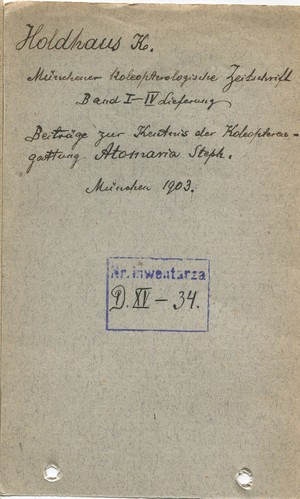 Holdhaus K.
Münchener Koleopterologische Zeitschrift
Band I–IV Lieferung
Beiträge zur Kentnis der Koleopteren-
gattung Atomaria Steph.
München 1903.
Nr. inwentarza
D. XV – 34.